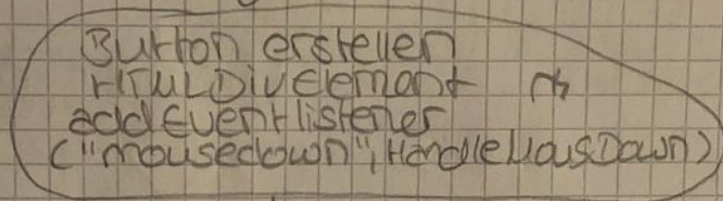 Button erstellen
HTMLDivElement
addEventlistener
("mousedown", HandleMousDown)